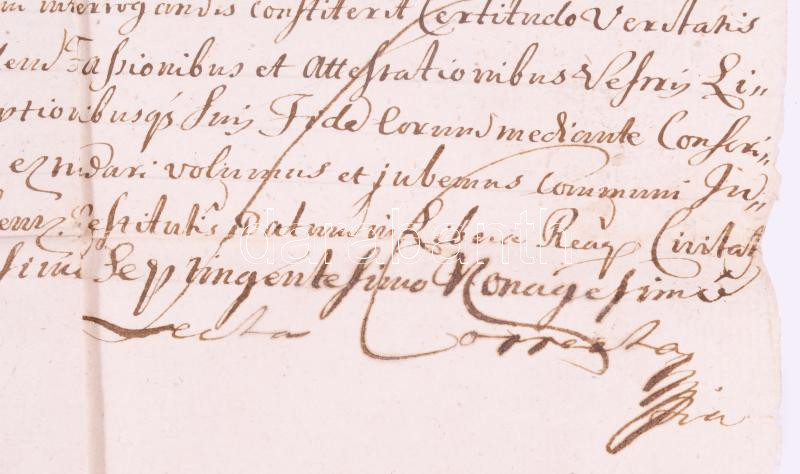 interrogandis constiterit Certitudo Veritatis
Fassionibus et Attestationibus Vestris Li„
ptionibusq̃ suis Fide eorum mediante Conscri„
extradari volumus et jubemus communi Ju„
Restitutis Datum in Libera Regaq Civitat
simo Septingentesimo Nonagesimo
Lecta Correcta
darabanth